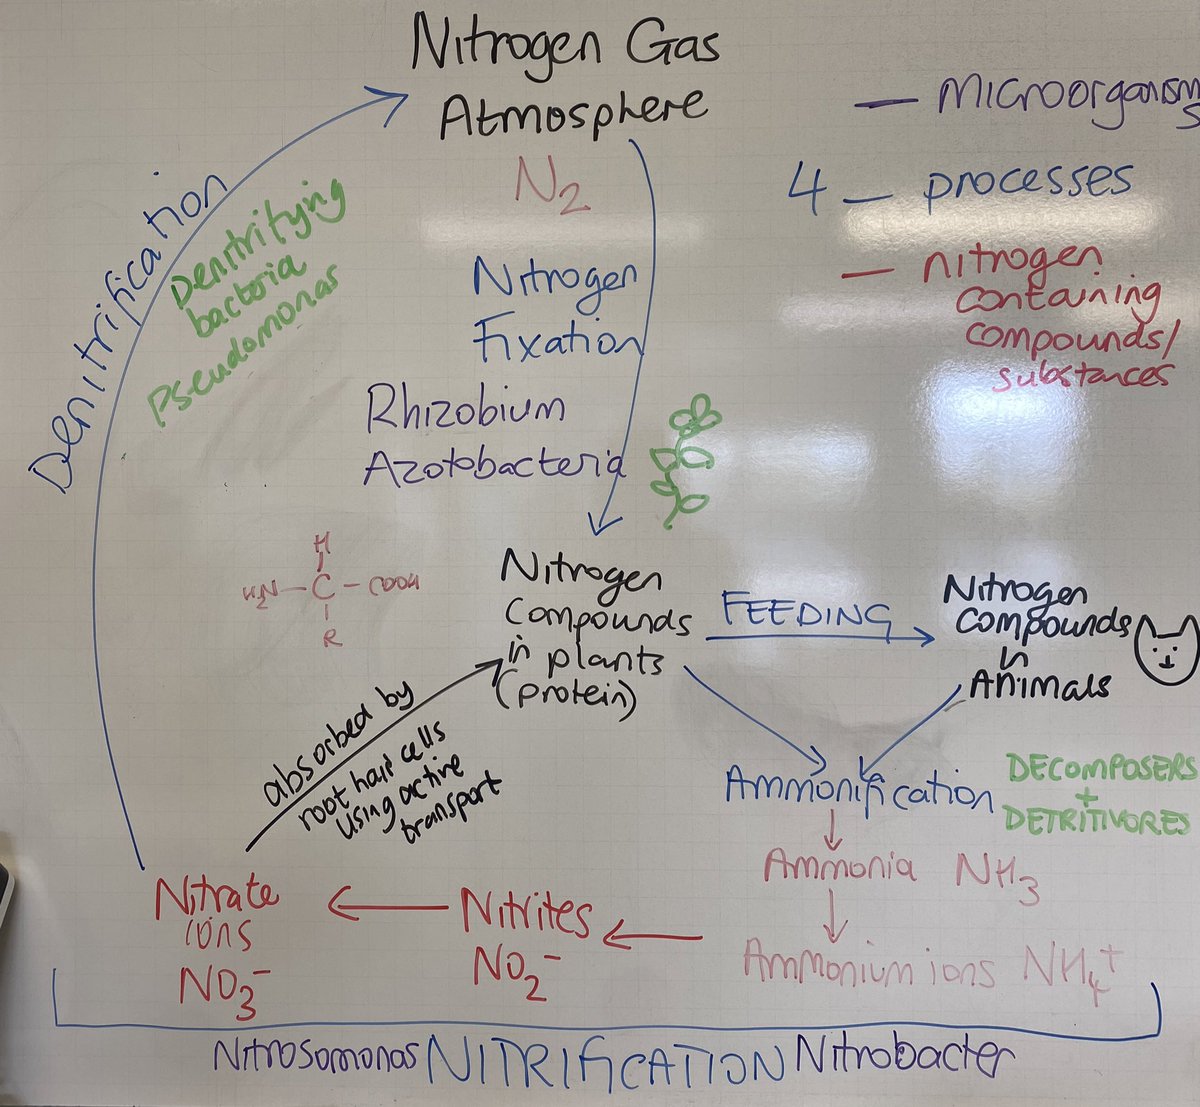 Nitrogen Gas
Atmosphere
N2
— Microorganisms
4 — processes
— nitrogen
containing
compounds/
substances
Denitrification
Denitrifying
bacteria
Pseudomonas
Nitrogen
Fixation
Rhizobium
Azotobacteria
H
H2N — C — COOH
R
Nitrogen
Compounds
in plants
(protein)
FEEDING
Nitrogen
Compounds
in
Animals
absorbed by
root hair cells
using active
transport
Ammonification
DECOMPOSERS
+
DETRITIVORES
Ammonia NH3
Ammonium ions NH4+
Nitrites
NO2-
Nitrate
ions
NO3-
Nitrosomonas NITRIFICATION Nitrobacter